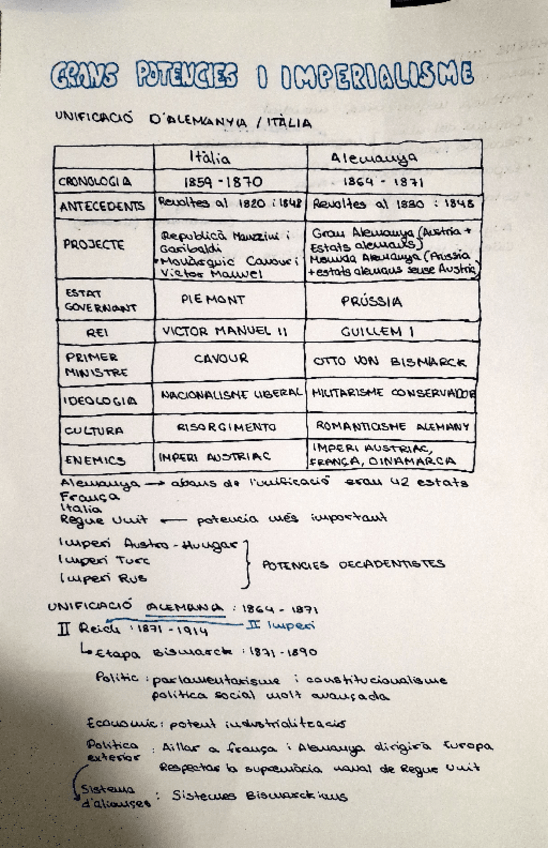 GRANS POTENCIES I IMPERIALISME
UNIFICACIÓ D'ALEMANYA / ITÀLIA
Itàlia Alemanya
CRONOLOGIA 1859-1870 1864-1871
ANTECEDENTS Revoltes al 1820 i 1848 Revoltes al 1830 i 1848
PROJECTE
Republicà Manzzini i
Garibaldi
•Monàrquic Cavour i
Victor Manuel
Gran Alemanya (Austria +
Estats alemans)
Menuda Alemanya (Prússia
+estats alemans sense Austria)
ESTAT
GOVERNANT PIEMONT PRÚSSIA
REI VICTOR MANUEL II GUILLEM I
PRIMER
MINISTRE CAVOUR OTTO VON BISMARCK
IDEOLOGIA NACIONALISME LIBERAL MILITARISME CONSERVADOR
CULTURA RISORGIMENTO ROMANTICISME ALEMANY
ENEMICS IMPERI AUSTRIAC IMPERI AUSTRIAC,
FRANÇA, DINAMARCA
Alemanya → abans de l'unificació eran 42 estats
França
Italia
Regne Unit ← potencia més important
Imperi Austro-Hungar
Imperi Turc
Imperi Rus
POTENCIES DECADENTISTES
UNIFICACIÓ ALEMANIA : 1864-1871
II Reich : 1871-1914 II Imperi
↳ Etapa Bismarck : 1871-1890
Politic : parlamentarisme i constitucionalisme
politica social molt avançada
Economic : potent industrialització
Politica
exterior : Aillar a frança i Alemanya dirigirà Europa
Respectar la supremàcia naval de Regne Unit
Sistema
d'aliançes : Sistemes Bismarckians